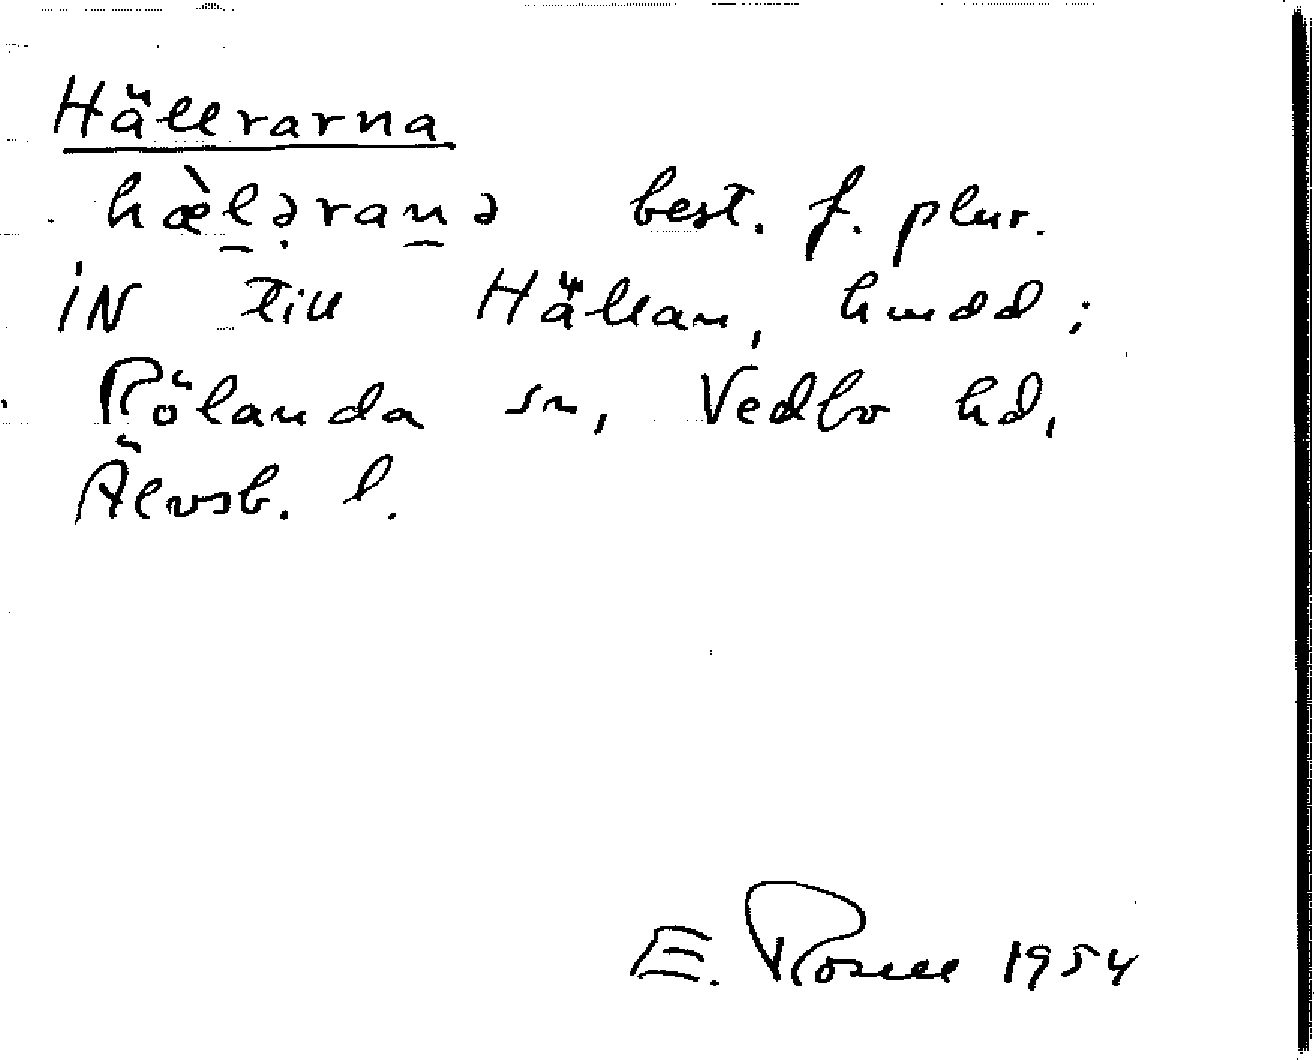 Hällrarna
hæ̀l̲ə̣ran̲ə best. f. plur.
IN till Hällan, hmdd;
Rölanda sn, Vedbo hd,
Älvsb. l.
E. Rosell 1954